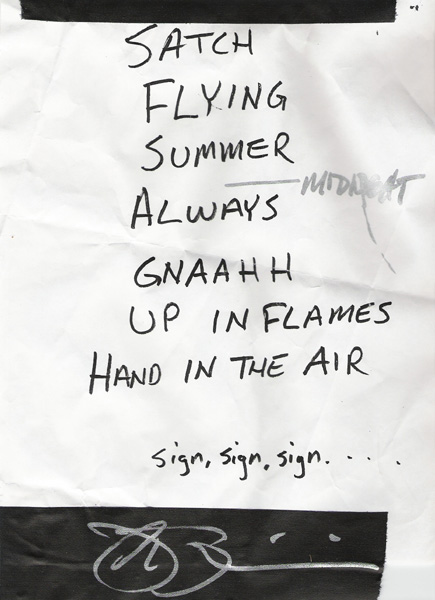 SATCH
FLYING
SUMMER
ALWAYS
GNAAHH
UP IN FLAMES
HAND IN THE AIR
sign, sign, sign. . . . .